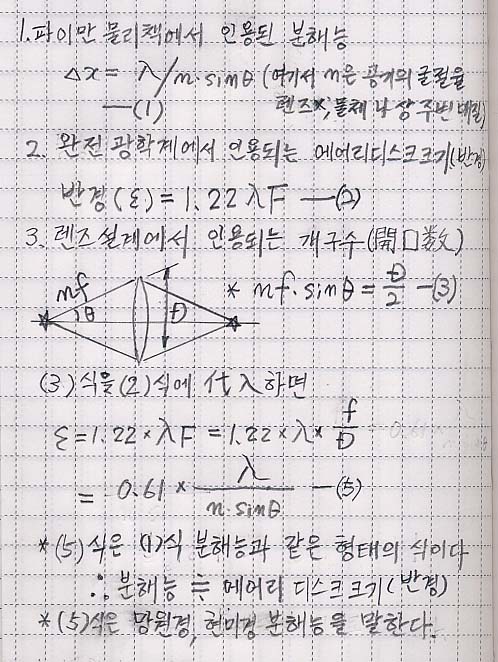 1. 파이만 물리책에서 인용된 분해능
Δx = λ/n·sinθ (여기서 n은 공기의 굴절율
—(1) 렌즈x, 물체나 상 주변 매질)
2. 완전 광학계에서 인용되는 에어리디스크크기(반경)
반경(ε) = 1.22λF —(2)
3. 렌즈설계에서 인용되는 개구수(開口数)
nf θ Đ * nf·sinθ = Đ/2 —(3)
(3)식을 (2)식에 代入하면
ε = 1.22 × λF = 1.22 × λ × f/Đ
= 0.61 × λ/n·sinθ —(5)
*(5)식은 (1)식 분해능과 같은 형태의 식이다
∴ 분해능 ≒ 에어리 디스크크기(반경)
*(5)식은 망원경, 현미경 분해능을 말한다.